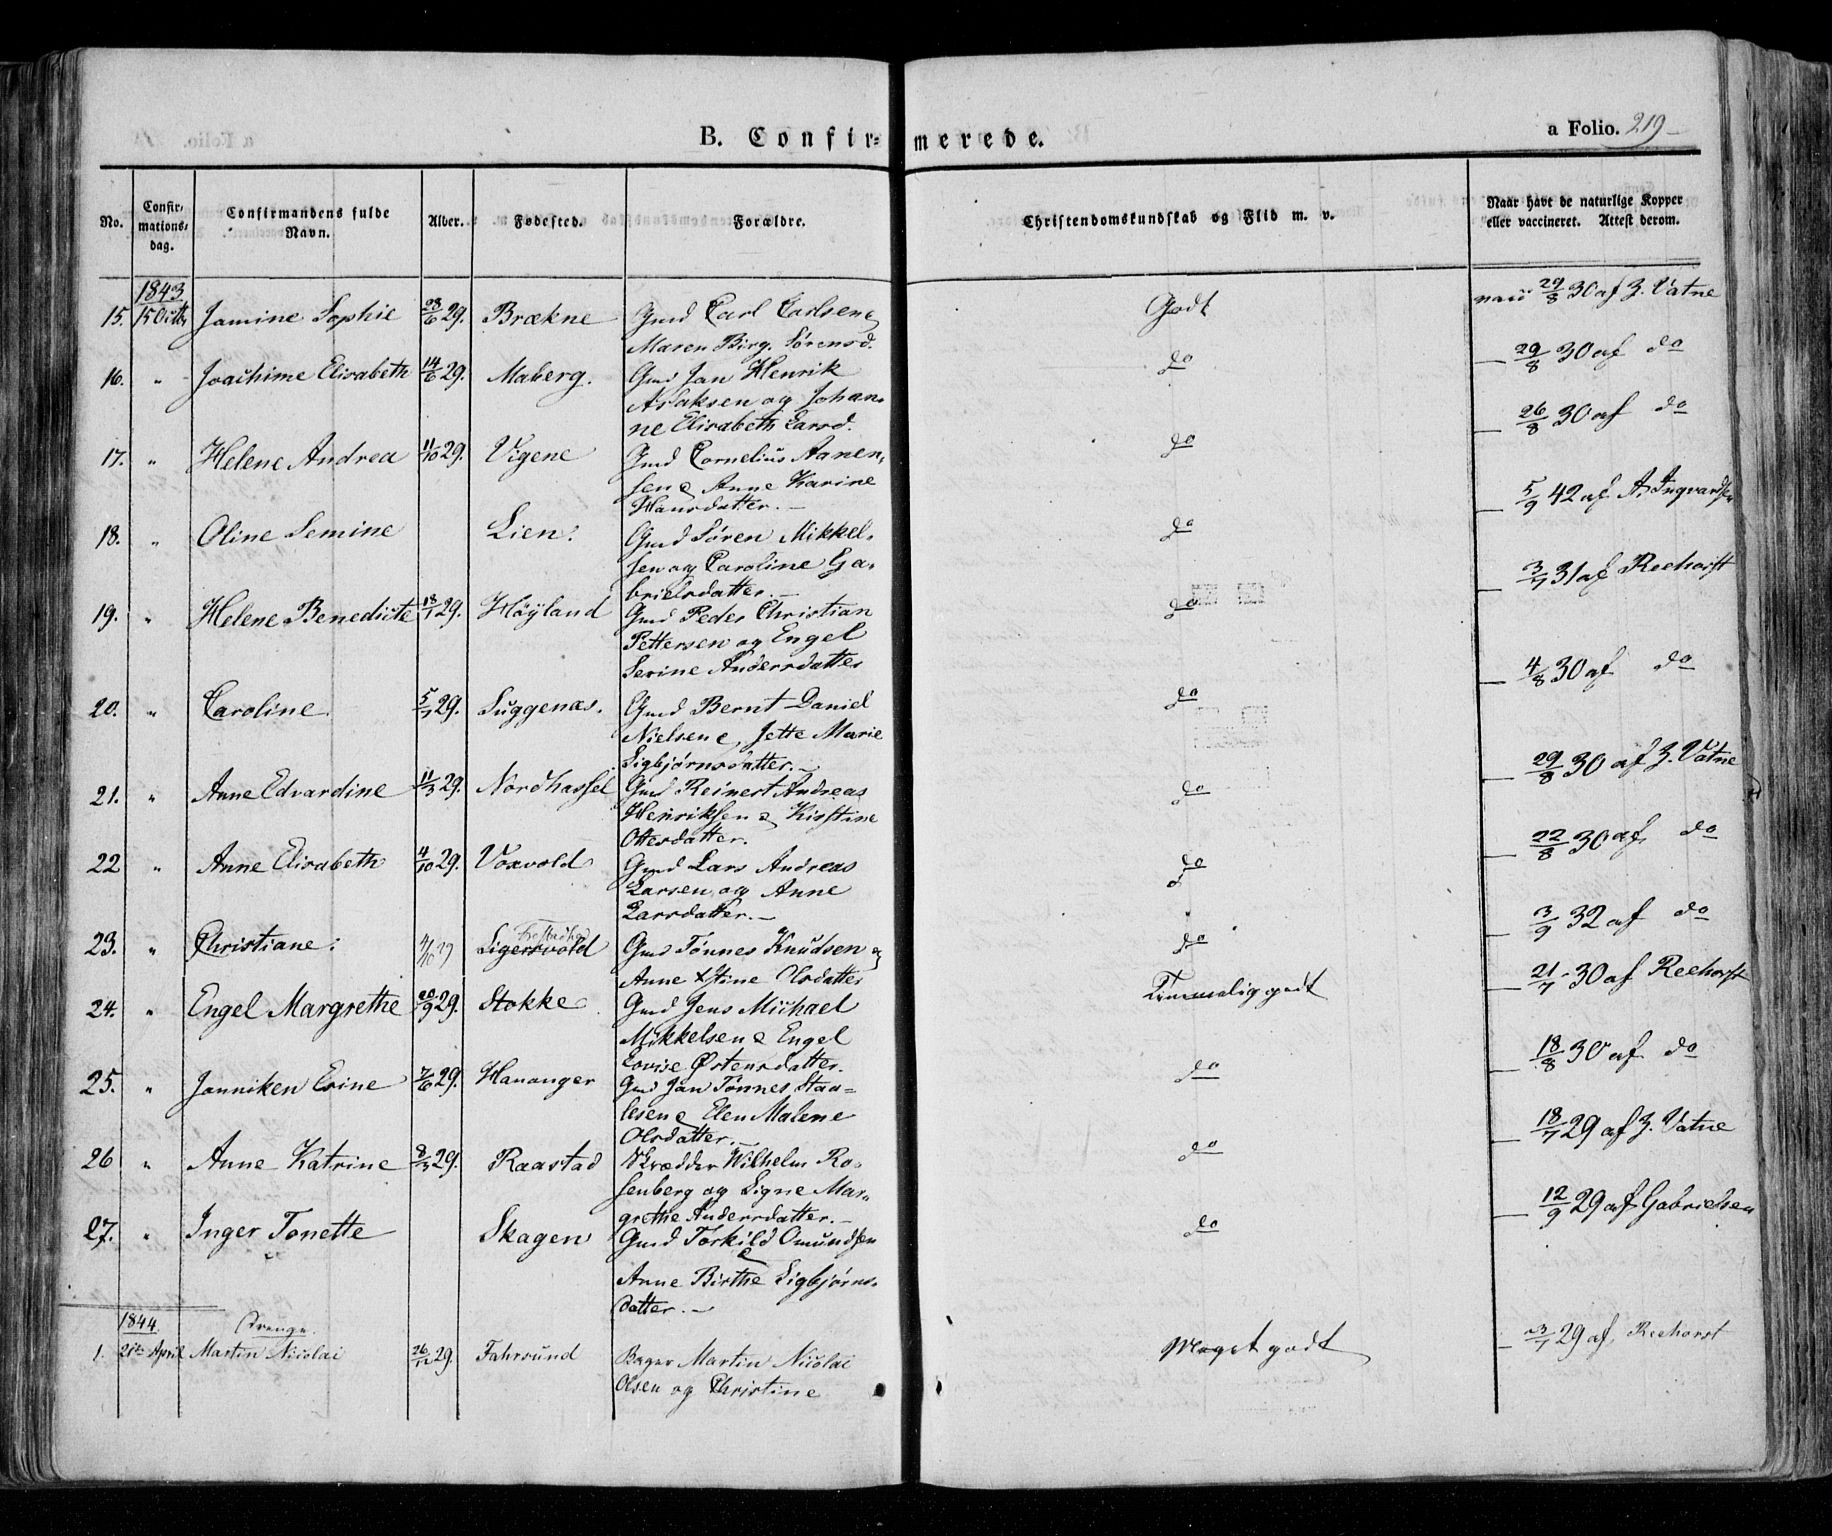 B. Confir-merede.
a Folio. 219
No.
Confir-
mations-
dag.
Confirmandens fulde
Navn.
Alder.
Fødested.
Forældre.
Christendomskundskab og Flid m. v.
Naar havt de naturlige Kopper
eller vaccineret. Attest derom.
1843.
15. 15 Octb Jamine Sophie 28/6 29. Brækne Gmd Carl Carlsen & Godt vacc 29/8 30 af Z. Vatne
Maren Birg. Sørensd.
16. " Joachime Elisabeth 14/6 29. Maberg. Gmd Jan Henrik do — 29/8 30 af do
Asaksen og Johan-
ne Elisabeth Larsd.
17. " Helene Andrea 11/10 29. Vigene Gmd Cornelius Aanen- do — 26/8 30 af do
sen & Anne Karine
Hansdatter. —
18. " Oline Semine Lien. Gmd Søren Mikkel- do — 5/9 42 af A. Ingvardsen
sen og Caroline Ga-
brielsdatter. —
19. " Helene Benedicte 18/1 29. Høyland Gmd Peder Christian do — 3/7 31 af Reehorst
Pettersen og Engel
Serine Andersdatter
20. " Caroline 5/7 29. Suggenæs. Gmd Bernt Daniel do — 4/8 30 af do
Nielsen &, Jette Marie
Sigbjørnsdatter. —
21. " Anne Edvardine 11/3 29. Nordhassel Gmd Reinert Andreas do — 29/8 30 af Z. Vatne
Henriksen & Kirstine
Ottersdatter.
22 " Anne Elisabeth 4/10 29. Voxvold Gmd Lars Andreas do — 22/8 30 af do
Larsen og Anne
Larsdatter. —
23. " Christiane: 4/10 29 Sigersvold Gmd Tønnes Knudsen og do — 3/9 32 af do
Anne Stine Olsdatter
24. " Engel Margrethe 20/9 29. Stokke Gmd Jens Michael Timmelig godt — 21/7 30 af Reehorst
Mikkelsen & Engel
Lovise Østensdatter.
25. " Janniken Esine 7/6 29. Hananger Gmd Jan Tønnes Staa- do — 18/8 30 af do
lesen & Elen Malene
Olsdatter. —
26 " Anne Katrine 8/3 29. Raastad Skrædder Wilhelm Ro- do — 18/7 29 af Z. Vatne
senberg og Signe Mar-
grethe Andersdatter. —
27. " Inger Tonette Skagen Gmd Torkild Omundsen do — 12/9 29 af Gabrielsen
&
Anne Birthe Sigbjørns-
datter. —
1844. Drenge.
1. 21de April Martin Nicolai 26/12 29 Fahrsund Bager Martin Nicolai Meget godt — 23/7 29 af Reehorst
Olsen og Christine